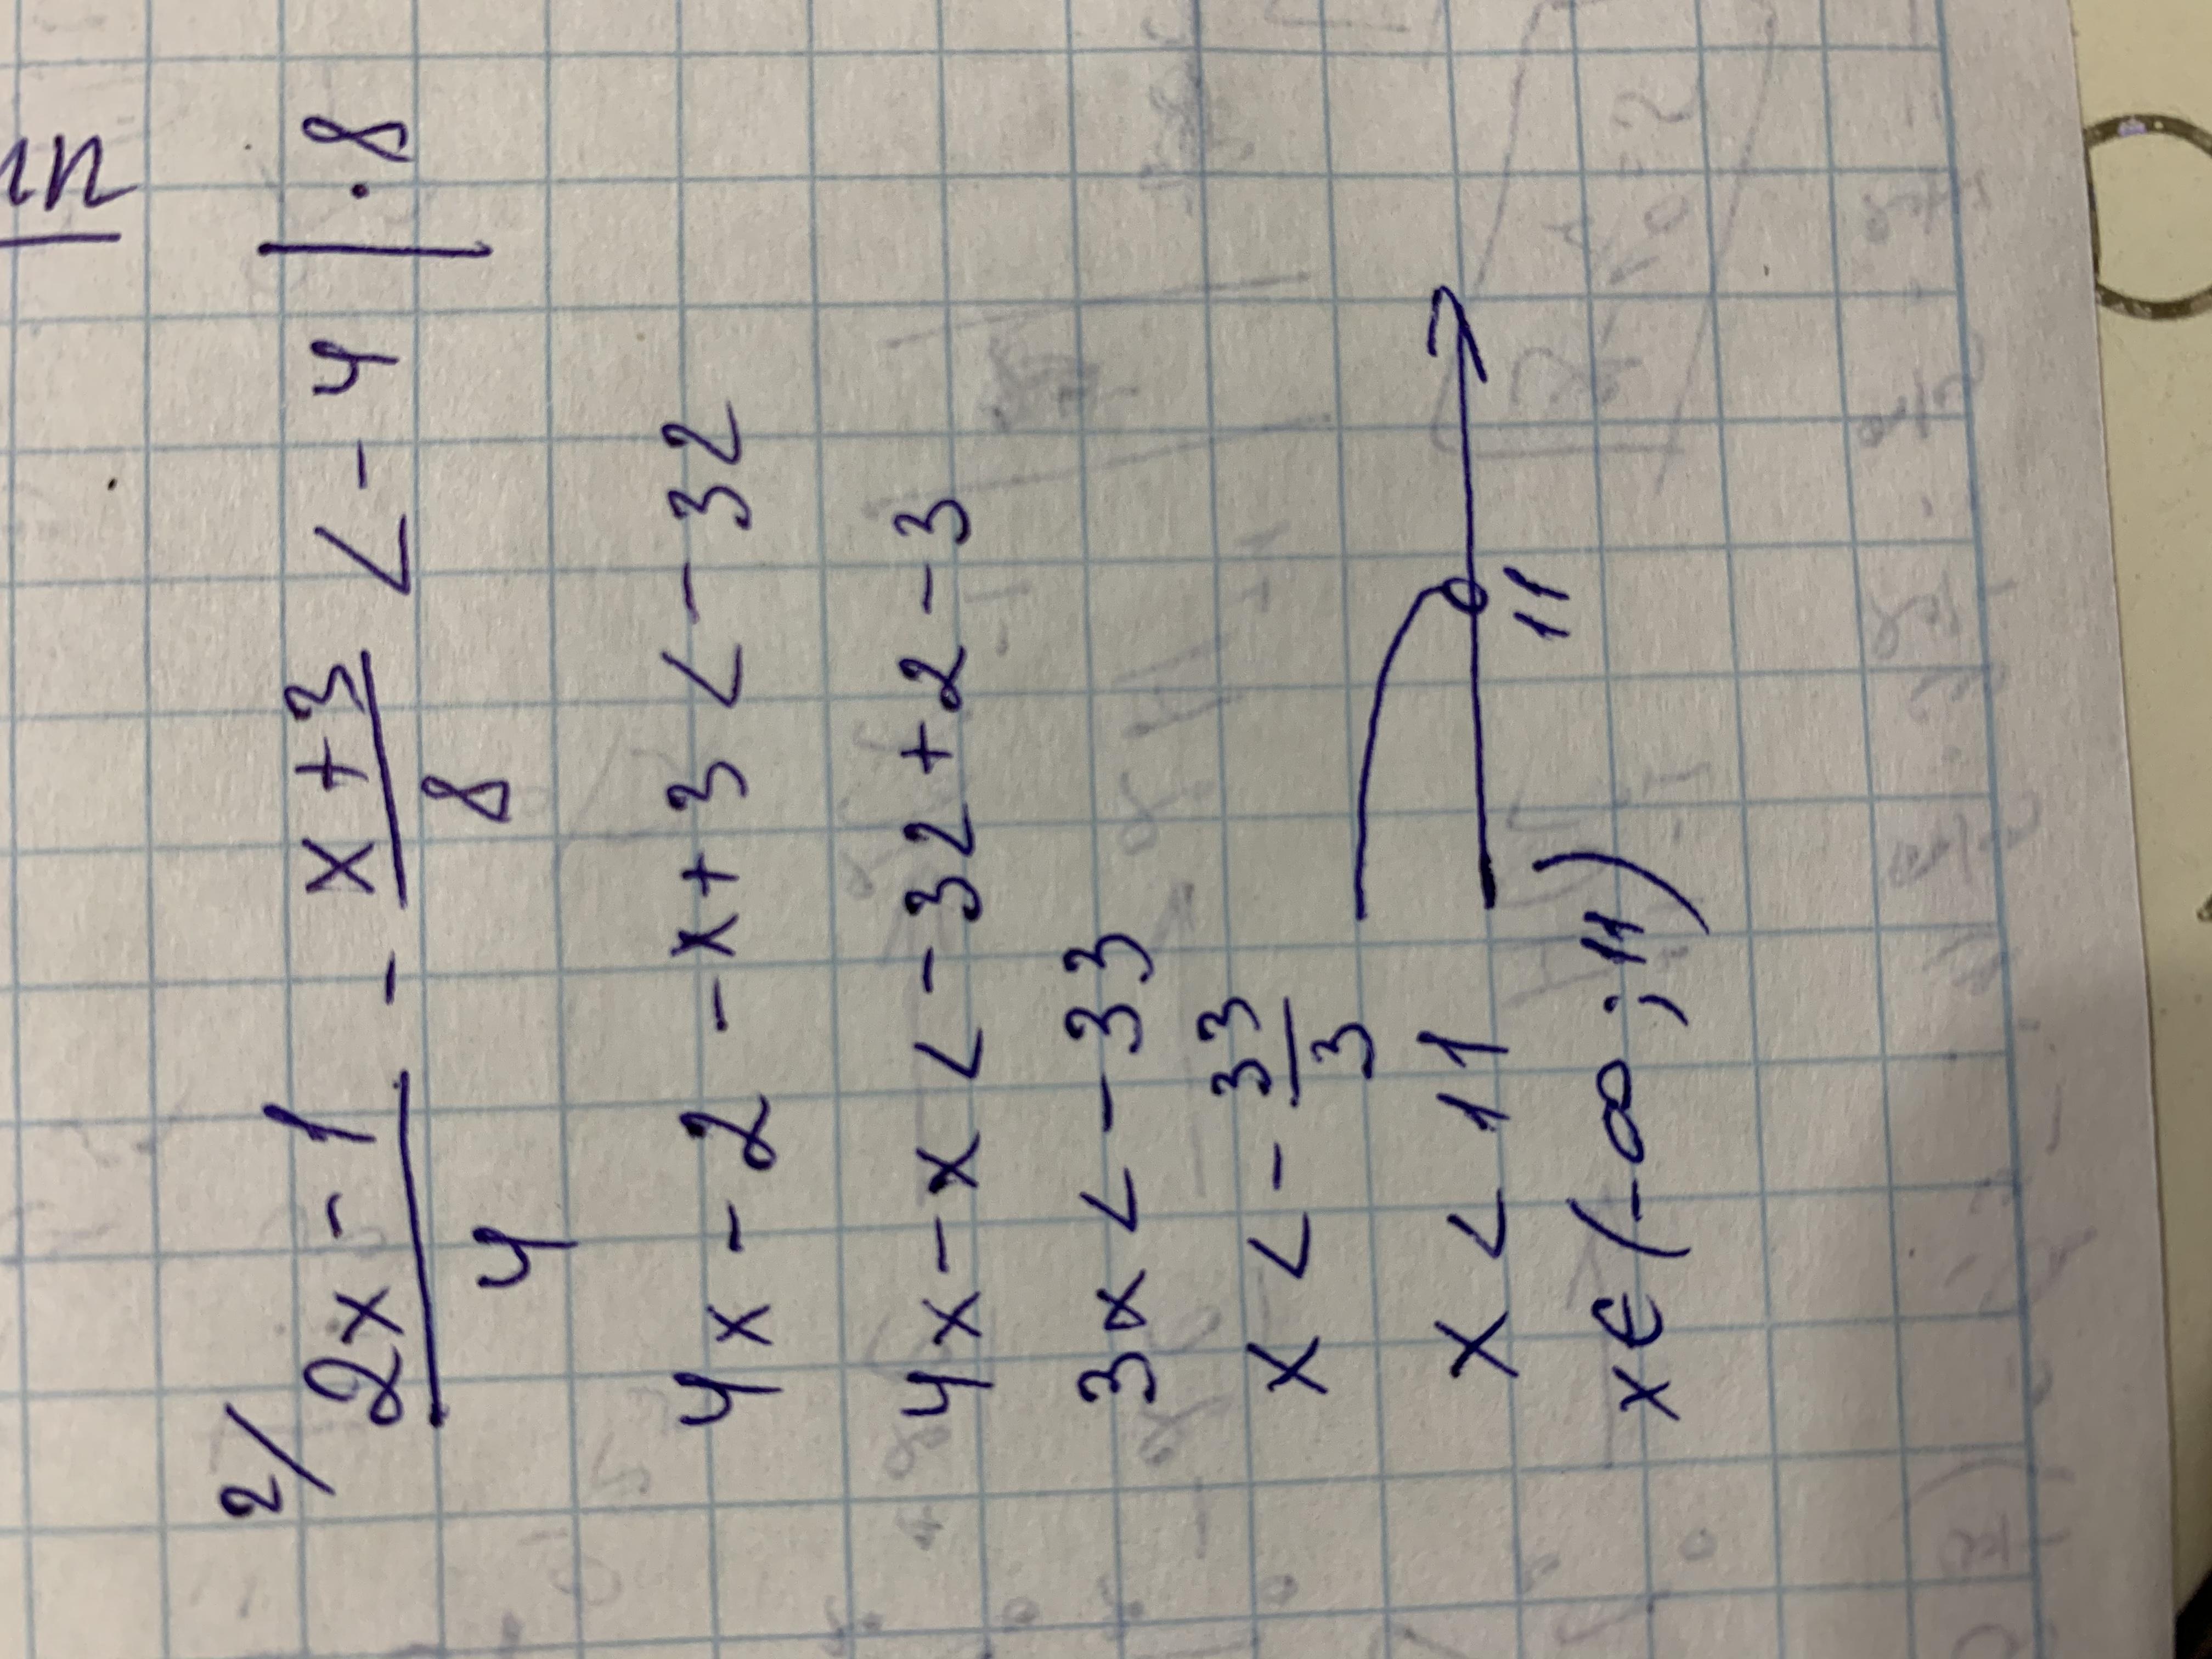 2/ (2x - 1)/4 - (x+3)/8 < -4 | · 8
4x - 2 - x + 3 < - 32
4x - x < - 32 + 2 - 3
3x < - 33
x < - 33/3
x < 11
11
x ∈ (-∞ ; 11)